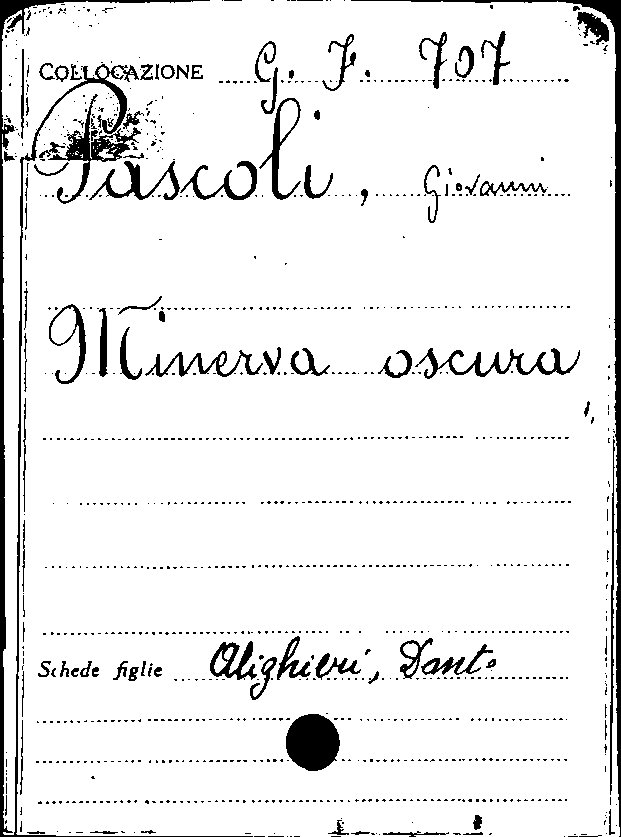 COLLOCAZIONE G. F. 707
Pascoli, Giovanni
Minerva oscura
Schede figlie Alighieri, Dante